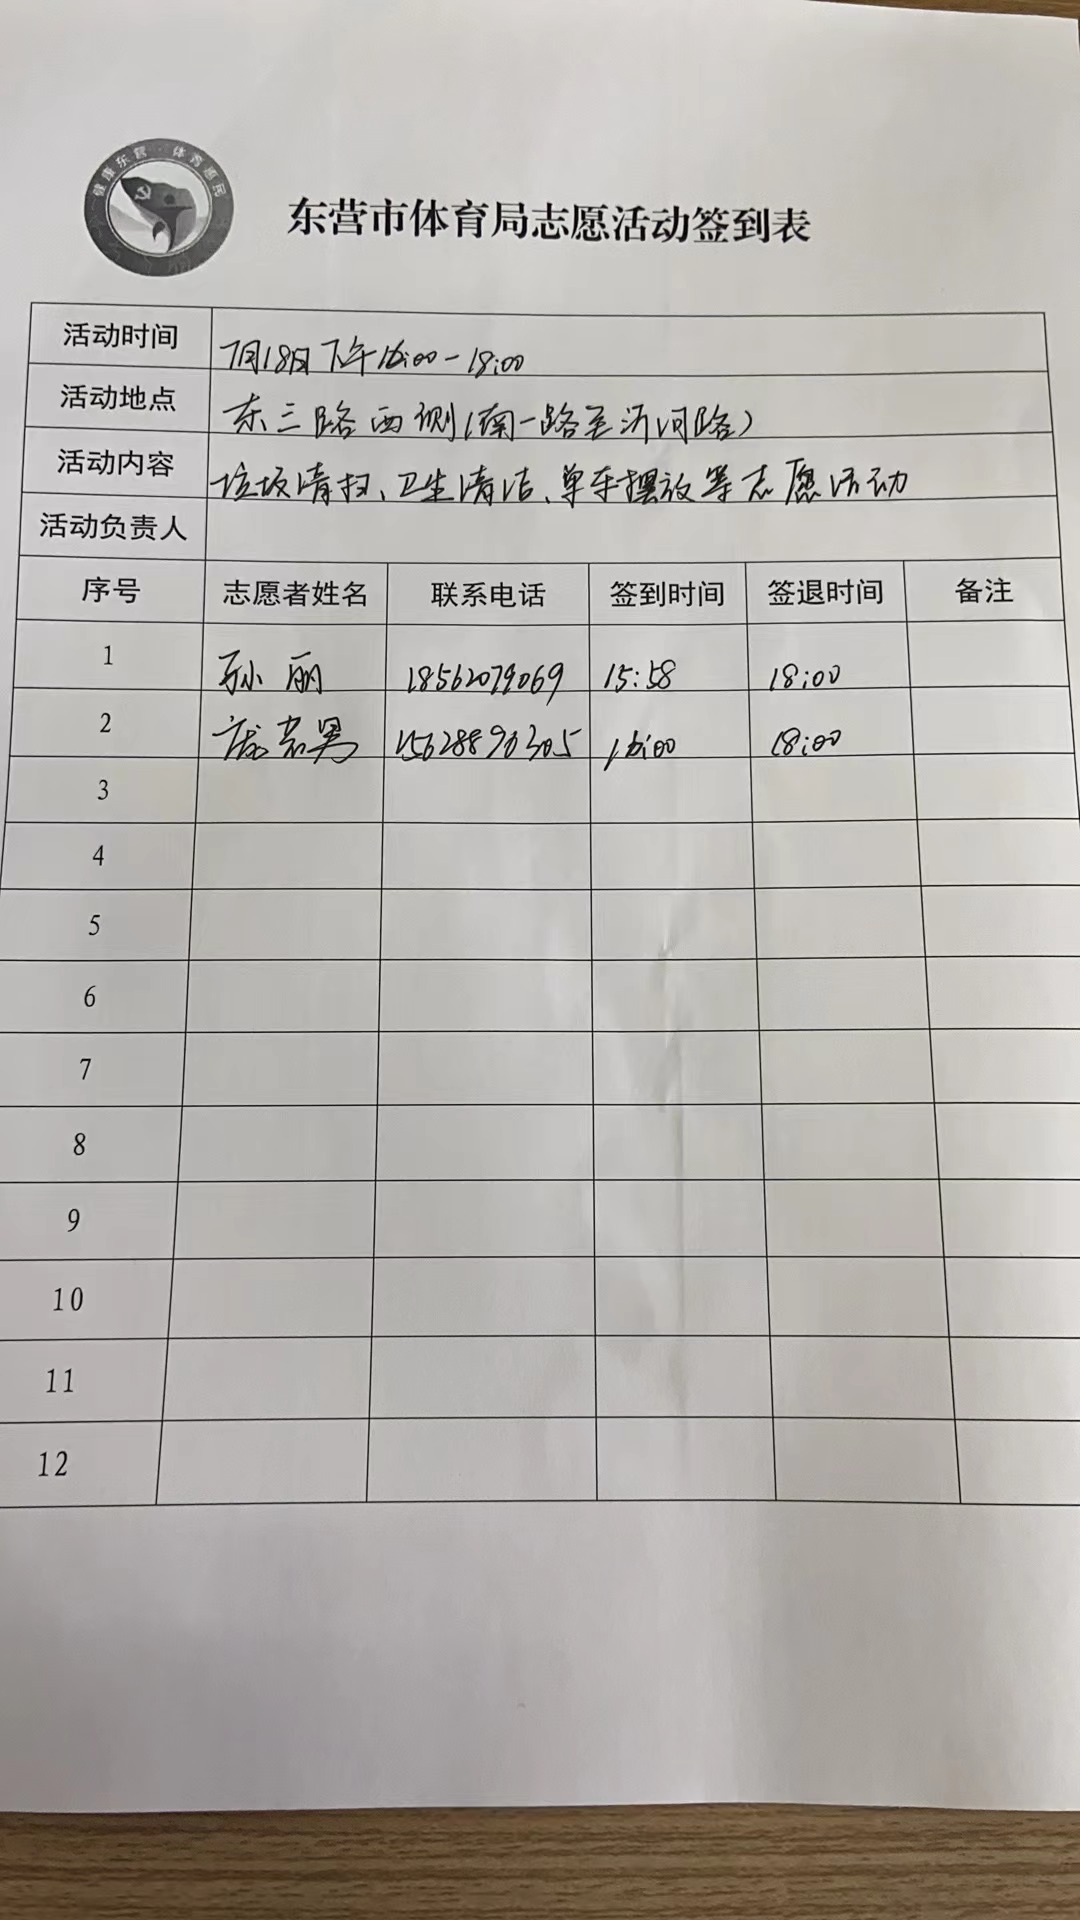 健康东营·体育惠民
东营市体育局志愿活动签到表
活动时间 7月18日下午16:00-18:00
活动地点 东三路西侧(南一路至沂河路)
活动内容 垃圾清扫、卫生清洁、单车摆放等志愿活动
活动负责人
序号 志愿者姓名 联系电话 签到时间 签退时间 备注
1 孙丽 18562079069 15:58 18:00
2 庞若男 15628890305 16:00 18:00
3
4
5
6
7
8
9
10
11
12